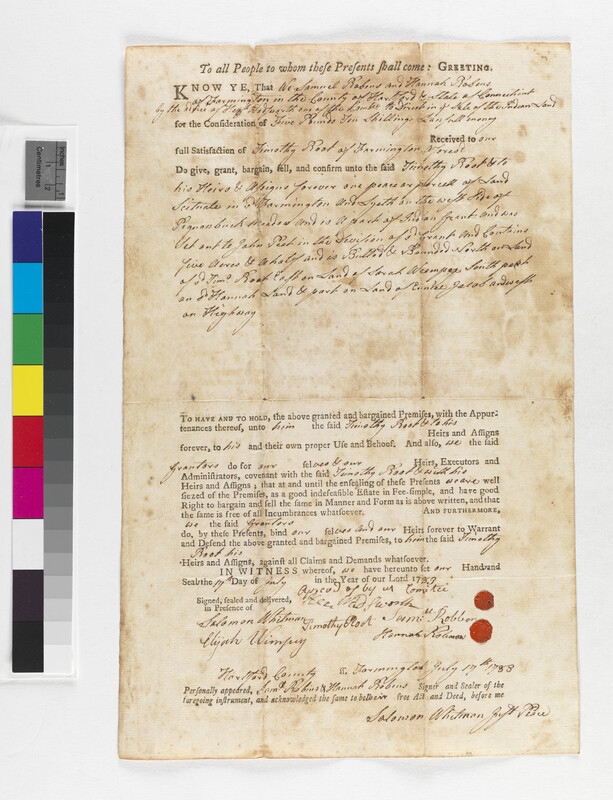 To all People to whom these Presents shall come: GREETING.
KNOW YE, That We Samuel Robins and Hannah Robins
of Farmington in the County of Hartford & State of Connecticut
by the of the of Sale of the Indian Land
for the Consideration of Five Pounds Ten Shillings Lawfull money
Received to our
full Satisfaction of Timothy Root of Farmington
Do give, grant, bargain, sell, and confirm unto the said Timothy Root & to
his Heirs & Assigns forever one peace or parcell of Land
Scituate in sd Farmington and Lyeth on the west side of
Meadow and is A part of Indian Grant and was
Set out to John in the Division of sd Grant and Contains
five Acres & a half and is Butted & Bounded North on Land
of sd Timo Root East on Land of Sarah South part
on sd Hannah Land & part on Land of Jacob and west
on Highway
TO HAVE AND TO HOLD, the above granted and bargained Premises, with the Appur-
tenances thereof, unto him the said Timothy Root & to his
Heirs and Assigns
forever, to his and their own proper Use and Behoof. And also, we the said
grantors do for our selves & our Heirs, Executors and
Administrators, covenant with the said Timothy Root & with his
Heirs and Assigns; that at and until the ensealing of these Presents we are well
seized of the Premises, as a good indefeasible Estate in Fee-simple, and have good
Right to bargain and sell the same in Manner and Form as is above written, and that
the same is free of all Incumbrances whatsoever. AND FURTHERMORE,
we the said Grantors
do, by these Presents, bind our selves and our Heirs forever to Warrant
and Defend the above granted and bargained Premises, to him the said Timothy
Root his
Heirs and Assigns, against all Claims and Demands whatsoever.
IN WITNESS whereof, we have hereunto set our Hand and
Seal the 17th Day of July in the Year of our Lord 178
Approved of by us Comtee
Signed, sealed and delivered,
in Presence of
Solomon Whitman Timothy Root Samll Robbins
Elijah Wimpey Hannah Robins
Hartford County ss. Farmington July 17th 1788
Personally appeared, Samll Robins & Hannah Robins Signer and Sealer of the
foregoing instrument, and acknowledged the same to be their free Act and Deed, before me
Solomon Whitman Just Peace
Inches
1
2
Centimetres